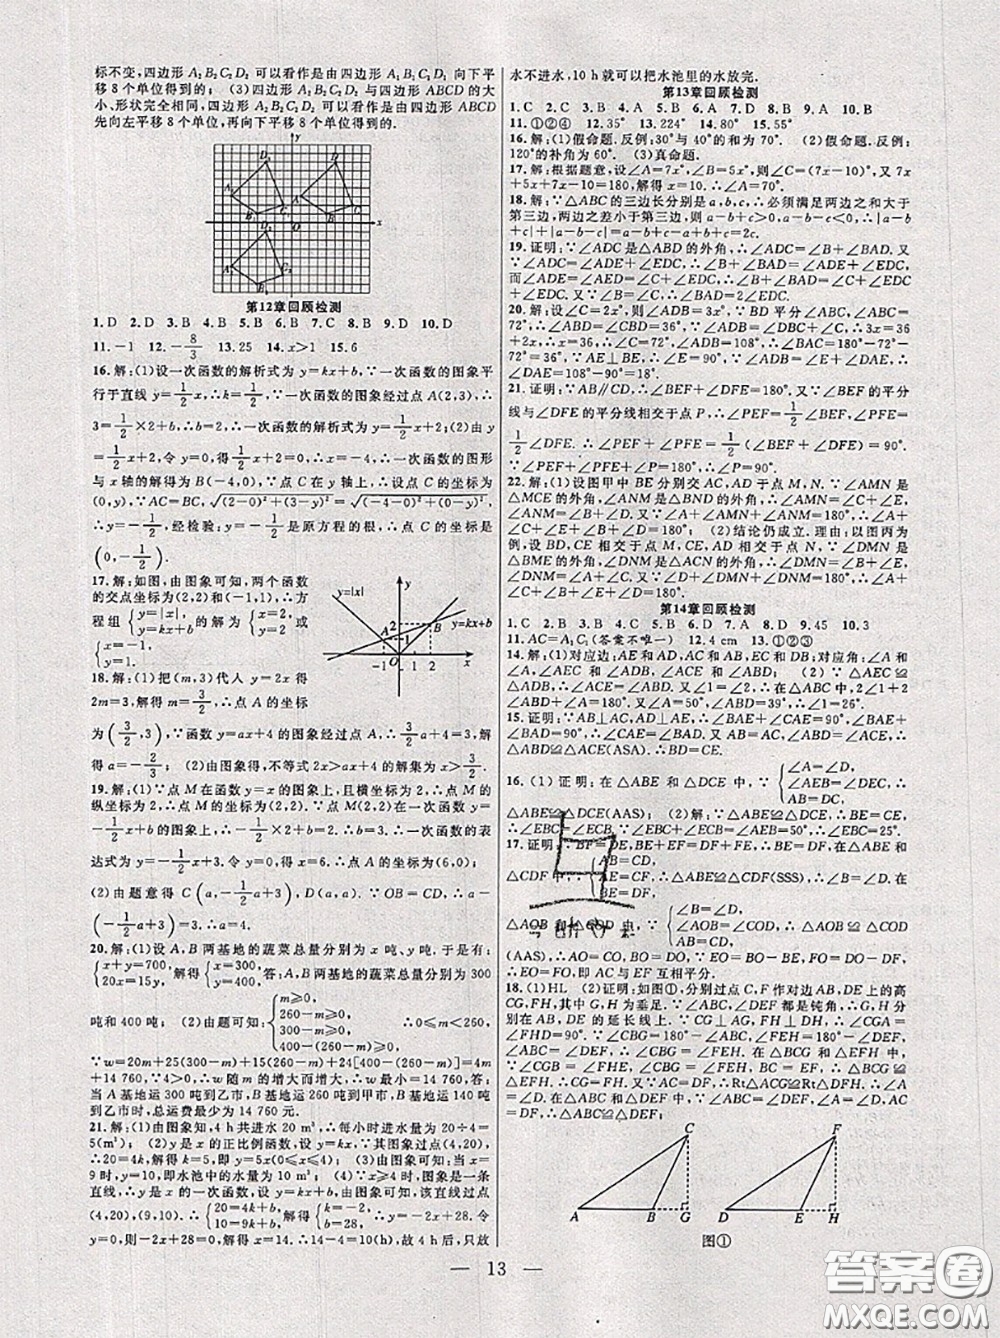 标不变,四边形 A₂B₂C₂D₂ 可以看作是由四边形 A₁B₁C₁D₁ 向下平
移 8 个单位得到的;(3)四边形 A₂B₂C₂D₂ 与四边形 ABCD 的大
小、形状完全相同,四边形 A₂B₂C₂D₂ 可以看作是由四边形 ABCD
先向左平移 8 个单位,再向下平移 8 个单位得到的.
第12章回顾检测
1. D 2. D 3. B 4. B 5. B 6. B 7. C 8. B 9. D 10. D
11. -1 12. -8/3 13. 25 14. x>1 15. 6
16. 解:(1)设一次函数的解析式为 y=kx+b,∵一次函数的图象平
行于直线 y=1/2x,∴k=1/2,∴一次函数的图象经过点 A(2,3),∴
3=1/2×2+b,∴b=2,∴一次函数的解析式为 y=1/2x+2;(2)由 y
=1/2x+2,令 y=0,得 1/2x+2=0,∴x=-4,∴一次函数的图形
与 x 轴的解得为 B(-4,0),∵点 C 在 y 轴上,∴设点 C 的坐标为
(0,y),∵AC=BC,∴√((2-0)²+(3-y)²)=√((-4-0)²+(0-y)²),
∴y=-1/2,经检验:y=-1/2是原方程的根,∴点 C 的坐标是
(0,-1/2).
17. 解:如图,由图象可知,两个函数
的交点坐标为(2,2)和(-1,1),∴方
程组 {y=|x|, y=kx+b 的解为 {x=2, y=2 或
{x=-1, y=1.
y=|x| y=kx+b
18. 解:(1)把(m,3)代人 y=2x 得
2m=3,解得 m=3/2,∴点 A 的坐标
为(3/2,3),∵函数 y=ax+4 的图象经过点 A,∴3/2a+4=3,解
得 a=-2/3; (2)由图象得,不等式 2x>ax+4 的解集为 x>3/2.
19. 解:(1)∵点 M 在函数 y=x 的图象上,且横坐标为 2,∴点 M 的
纵坐标为 2,∴点 M 的坐标为(2,2).∵点 M(2,2)在一次函数 y=
-1/2x+b 的图象上,∴-1/2×2+b=2.∴b=3.∴一次函数的表
达式为 y=-1/2x+3,令 y=0,得 x=6.∴点 A 的坐标为(6,0);
(2)由题意得 C(a,-1/2a+3),D(a,a).∵OB=CD,∴a-
(-1/2a+3)=3.∴a=4.
20. 解:(1)设 A,B 两基地的蔬菜总量分别为 x 吨、y 吨,于是有:
{x+y=700, 20x=15y, 解得{x=300, y=400, 答:A,B 两基地的蔬菜总量分别为 300
吨和 400 吨; (2)由题可知:{m≥0, 260-m≥0, 300-m≥0, 400-(260-m)≥0, ∴0≤m<260,
∵w=20m+25(300-m)+15(260-m)+24[400-(260-m)]=4m+
14 760,∵4>0,∴w 随 m 的增大而增大,∴w最小=14 760,答:
当 A 基地运 300 吨到乙市,B 基地运 260 吨到甲市,B 基地运 140 吨
到乙市时,总运费最少为 14 760 元.
21. 解:(1)由图象知,4 h 共进水 20 m³,∴每小时进水量为 20÷4=
5(m³); (2)y 是 x 的正比例函数,设 y=kx,∵其图象过点(4,20),
∴20=4k,解得 k=5,即 y=5x(0≤x≤4); (3)由图象可知:当 x=
9 时,y=10,即水池中的水量为 10 m³; (4)∵x≥4 时,图象是一条
直线,∴y 是 x 的一次函数,设 y=kx+b,由图象可知,该直线过点
(4,20),(9,10).∴{20=4k+b, 10=9k+b, ∴{k=-2, b=28, ∴y=-2x+28. 令
y=0,则-2x+28=0.解得 x=14.∴14-4=10(h),故 4 h 后,只放
水不进水,10 h 就可以把水池里的水放完.
第13章回顾检测
1. C 2. C 3. B 4. A 5. B 6. A 7. D 8. B 9. A 10. B
11. ①②④ 12. 35° 13. 224° 14. 80° 15. 55°
16. 解:(1)假命题. 反例:30°与 40°的和为 70°. (2)假命题,反例:
120°的补角为 60°. (3)真命题.
17. 解:根据题意,设∠A=7x°,∠B=5x°,则∠C=(7x-10)°,又
7x+5x+7x-10=180,解得 x=10.∴∠A=70°.
18. 解:∵△ABC 的三边长分别是 a,b,c,∴必须满足两边之和大于
第三边,两边之差小于第三边,则 a-b+c>0,a-b-c<0,∴|a-b+
c|+|a-b-c|=a-b+c-a+b+c=2c.
19. 证明:∵∠ADC 是△ABD 的外角,∴∠ADC=∠B+∠BAD. 又
∵∠ADC=∠ADE+∠EDC,∴∠B+∠BAD=∠ADE+∠EDC,
而∠ADE=∠AED,∴∠B+∠BAD=∠AED+∠EDC. 又
∵∠AED=∠EDC+∠C,∴∠B+∠BAD=∠EDC+∠C+
∠EDC. ∵∠B=∠C,∴∠BAD=2∠EDC.
20. 解:设∠C=2x°,则∠ABD=3x°. ∵BD 平分∠ABC,∠ABC=
72°,∴∠ABD=∠CBD=36°,∵∠C:∠ADB=2:3,∴2x+36
=3x,∴x=36,∴∠C=72°,∴∠BAC=180°-72°-72°=
36°,∵AE⊥BE,∴∠E=90°,∴∠ABE+∠ADB+∠DAE=
∠ADB=108°-90°=18°.
21. 证明:∵AB∥CD,∴∠BEF+∠DFE=180°,又∠BEF 的平分
线与∠DFE 的平分线相交于点 P,∴∠PEF=1/2∠BEF,∠PFE=
1/2∠DFE. ∴∠PEF+∠PFE=1/2(∠BEF+∠DFE)=90°.
∵∠PEF+∠PFE+∠P=180°,∴∠P=90°.
22. 解:(1)设图甲中 BE 分别交 AC,AD 于点 M,N. ∵∠AMN 是
△MCE 的外角,∠ANM 是△BND 的外角,∴∠AMN=∠C+∠E,
∠ANM=∠B+∠D,∵∠A+∠AMN+∠ANM=180°,∴∠A+
∠C+∠E+∠B+∠D=180°; (2)结论仍成立. 理由:以图丙为
例,设 BD,CE 相交于点 M,CE,AD 相交于点 N. ∵∠DMN 是
△BMC 的外角,∠DNM 是△ANE 的外角,∴∠DMN=∠B+∠C,
∠DNM=∠A+∠E,∵∠DMN+∠DNM+∠D=180°,∴∠A+
∠B+∠C+∠D+∠E=180°.
第14章回顾检测
1. C 2. B 3. D 4. C 5. B 6. D 7. A 8. D 9. 45 10. 3
11. AC=A₁C₁(答案不唯一) 12. 4 cm 13. ①②③
14. 解:(1)对应边:AE 和 AD,AC 和 AB,EC 和 DB;对应角:∠A 和
∠A,∠AEC 和∠ADB,∠ACE 和∠ABD; (2)∵△AEC≌
△ADB,∴∠ACE=∠ABD. ∵∠1=∠2,∴在△ABC 中,2∠1+2
∠ABD+∠A=180°. 又∵∠A=50°,∠ABD=39°,∴∠1=26°.
15. 证明:∵AB⊥AC,AD⊥AE,∴∠BAE+∠CAE=90°,∠CAD+
∠CAE=90°,∴∠BAE=∠CAD. 又 AB=AC,∠ABD=∠ACE,
∴△ABE≌△ACD(ASA). ∴BD=CE.
16. (1)证明:在△ABE 和△DCE 中,∵{∠A=∠D, ∠AEB=∠DEC, AB=DC, ∴
△ABE≌△DCE(AAS); (2)解:∵△ABE≌△DCE,∴BE=CE,
∴∠EBC=∠ECB,∵∠EBC+∠ECB=∠AEB=50°,∴∠EBC=25°.
17. 证明:∵BF=DE,∴BF+EF=DE+EF,即 BE=DF,在△ABE 和
△CDF 中,∵{AB=CD, AE=CF, BE=DF, ∴△ABE≌△CDF(SSS),∴∠B=∠D. 在
△AOB 和△COD 中,∵{∠B=∠D, ∠AOB=∠COD, AB=CD, ∴△AOB≌△COD
(AAS),∴AO=CO,BO=DO,∵BE=DF,∴EO=BO-BE=DO-
DF=FO=EO=FO,即 AC 与 EF 互相平分.
18. (1)HL (2)证明:如图①,分别过点 C,F 作对边 AB,DE 上的高
CG,FH,其中 G,H 为垂足. ∵∠ABC,∠DEF 都是钝角,∴G,H 分别
在 AB,DE 的延长线上. ∵CG⊥AG,FH⊥DH,∴∠CGA=
∠FHD=90°. ∵∠CBG=180°-∠ABC,∠FEH=180°-
∠DEF,∠ABC=∠DEF,∴∠CBG=∠FEH. 在△BCG 和△EFH
中,∵∠CGB=∠FHE,∠CBG=∠FEH,BC=EF,∴△BCG≌
△EFH,∴CG=FH. 又∵AC=DF,∴Rt△ACG≌Rt△DFH,
∴∠A=∠D. 在△ABC 和△DEF 中,∵∠ABC=∠DEF,∠A=
∠D,AC=DF,∴△ABC≌△DEF.
C F
A B G D E H
图①
— 13 —
答案圈
MXQE.COM